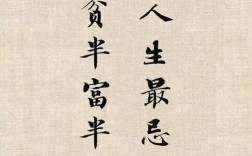 人生最忌
贫半富半